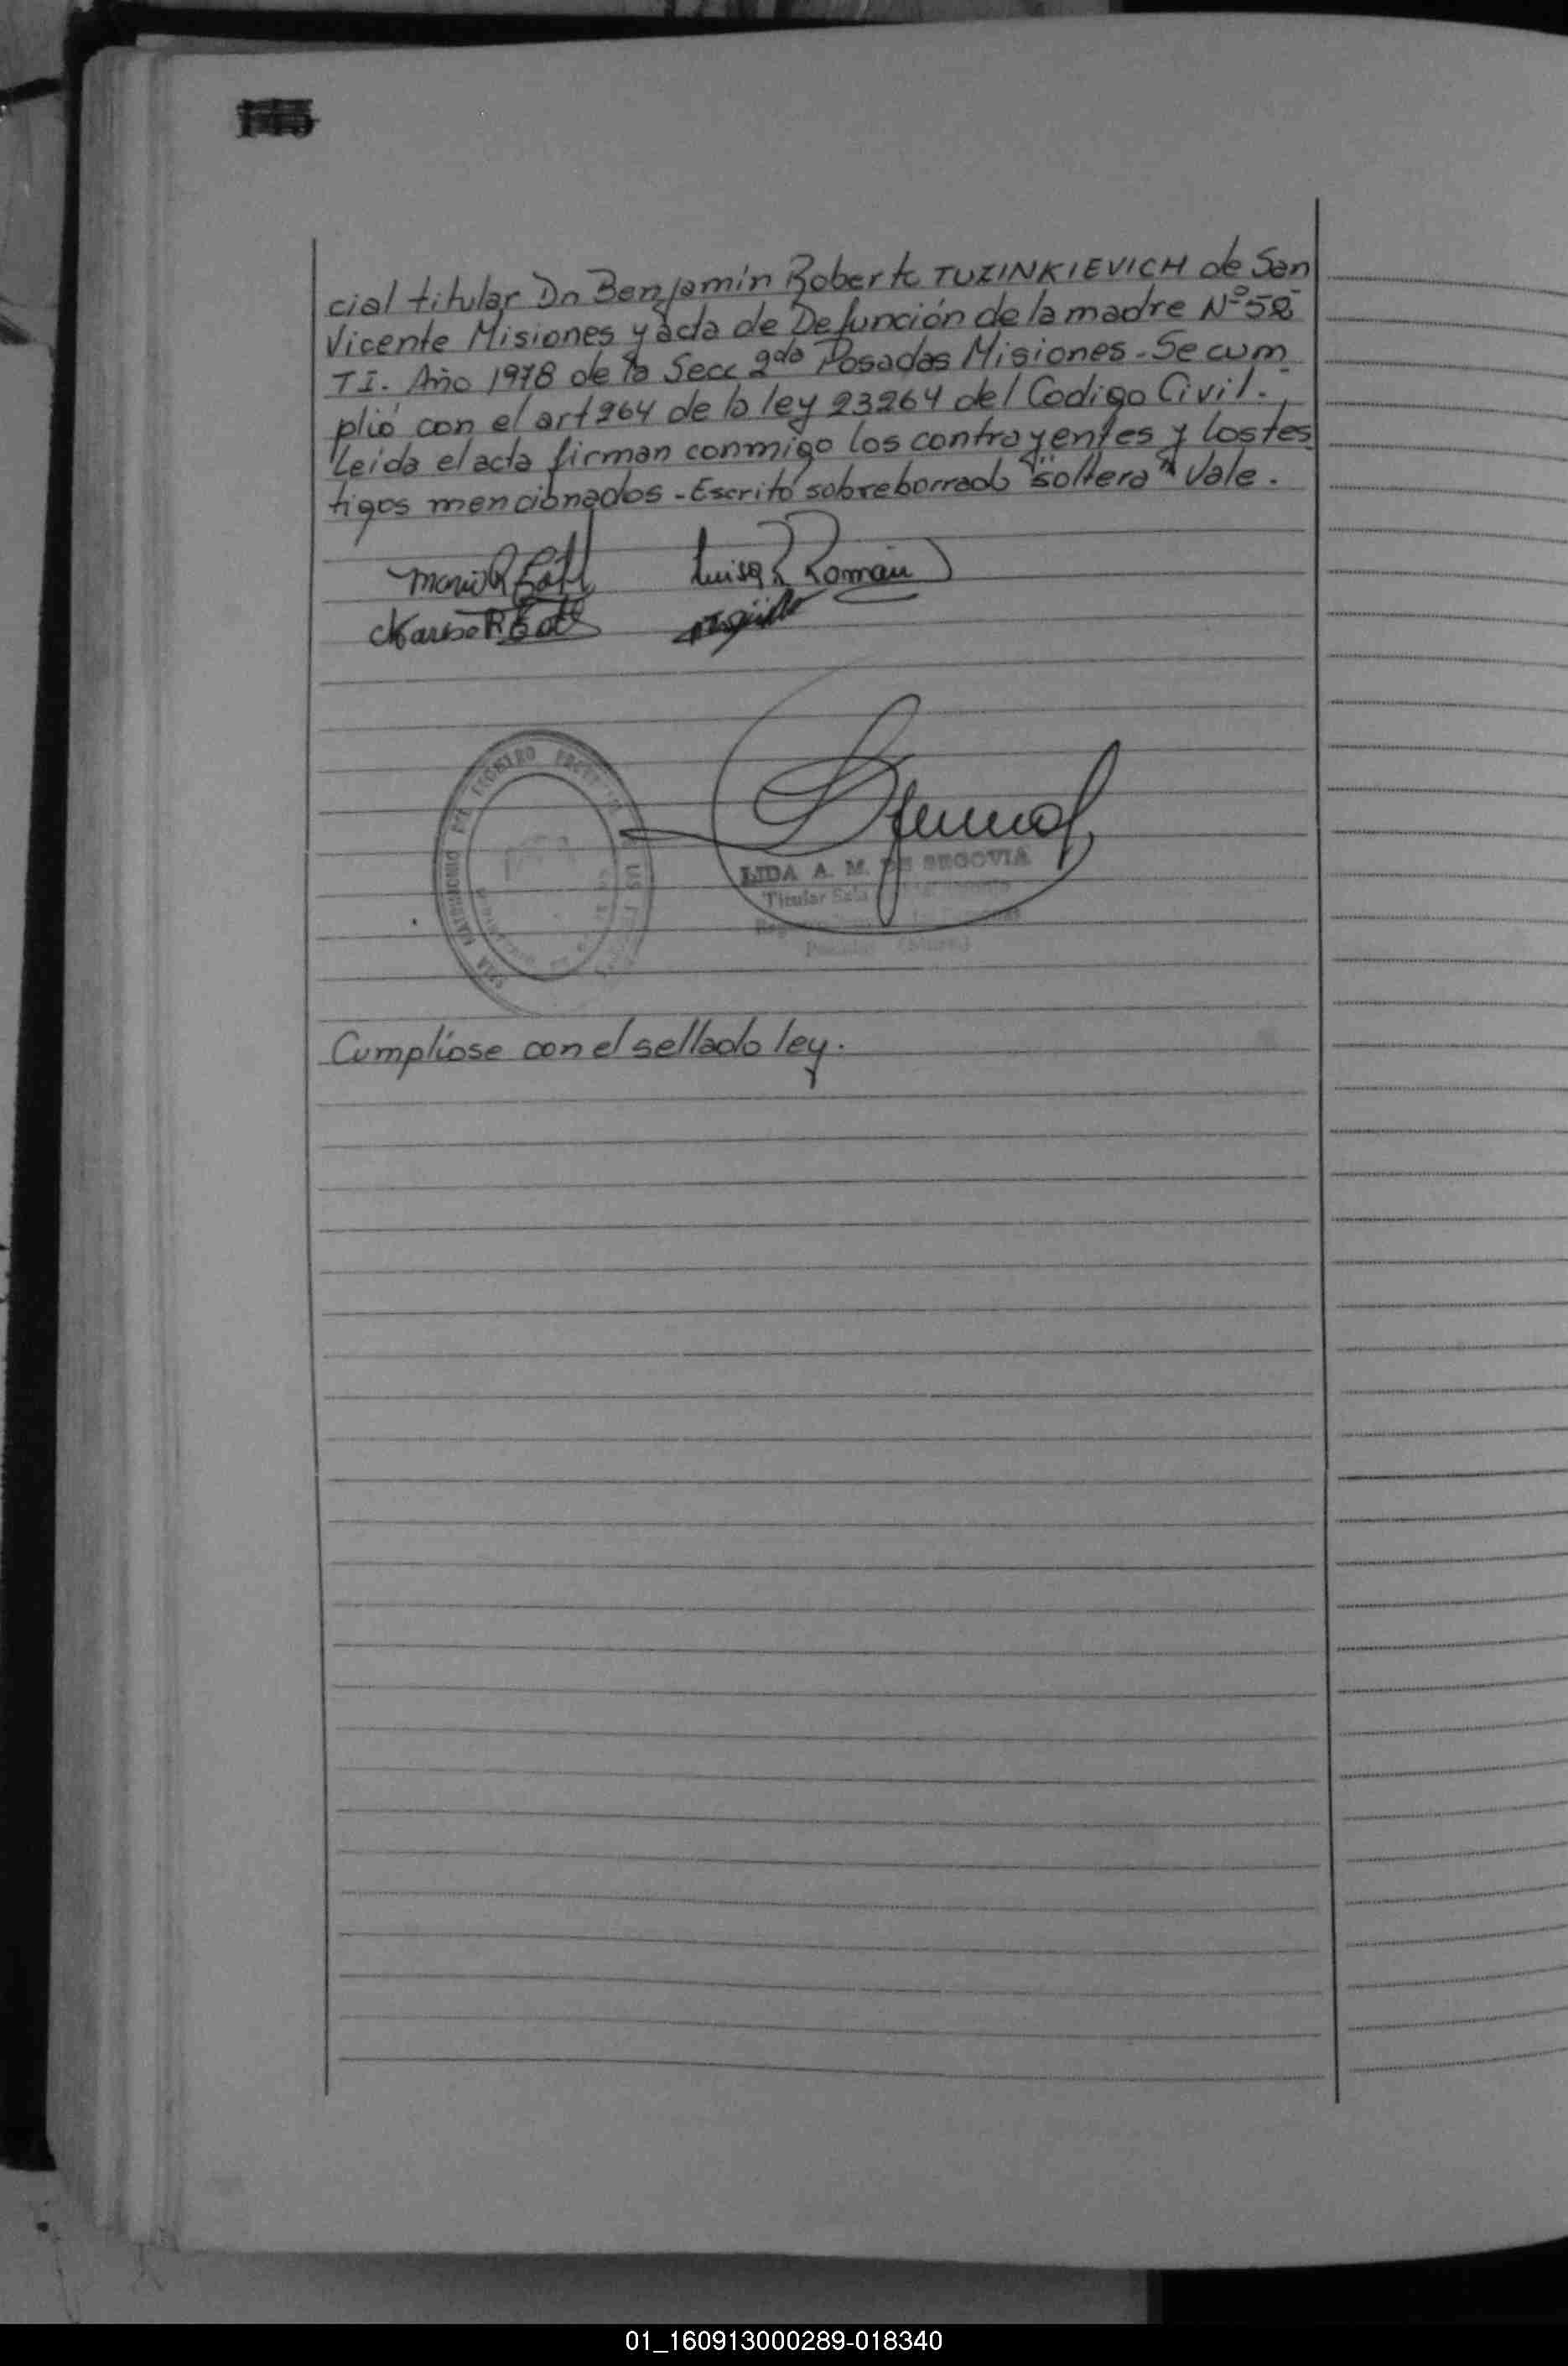 cial titular Dn Benjamín Roberto TUZINKIEVICH de San
Vicente Misiones y acta de Defunción de la madre Nº 58
TI. Año 1978 de la Secc 2da Posadas Misiones - Se cum
plió con el art 264 de la ley 23264 del Codigo Civil. -
Leída el acta firman conmigo los contrayentes y los tes
tigos mencionados - Escrito sobreborrado "soltera" Vale.
Luisa R Román
LIDA A. M. DE SEGOVIA
Titular Sala
Cumplíose con el sellado ley.
01_160913000289-018340